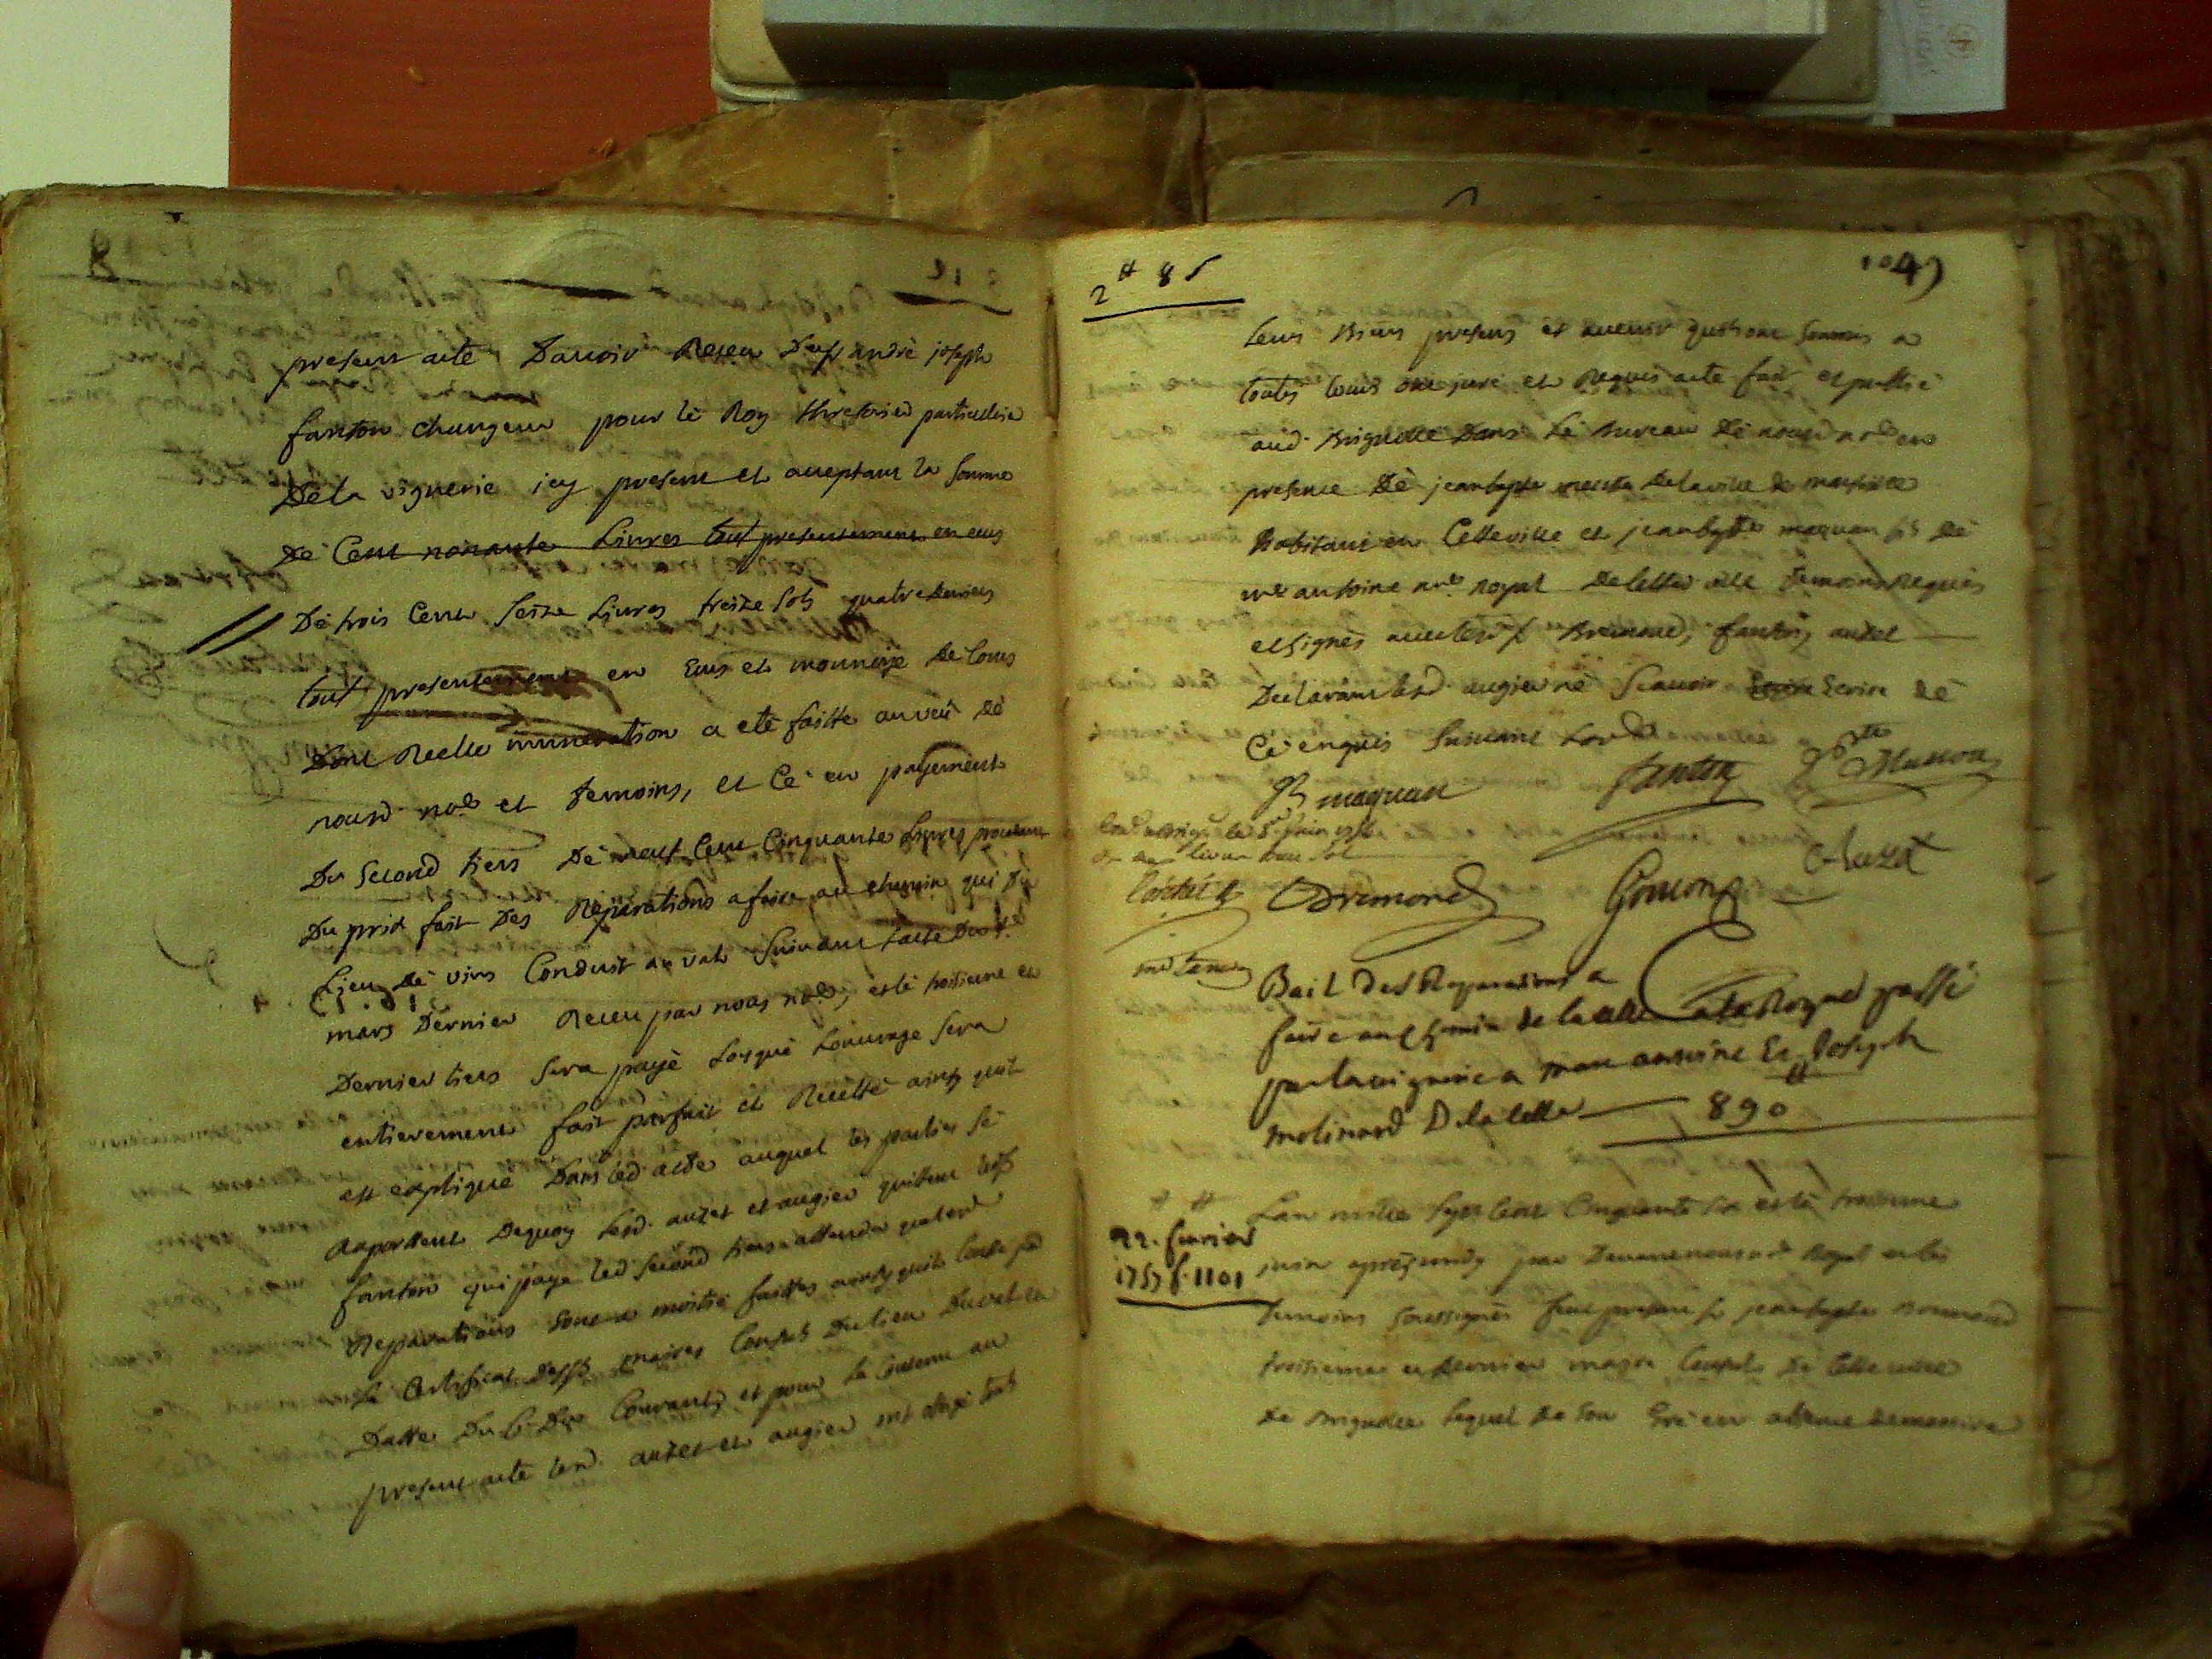 present acte Davoir Receu Du sr andré joseph
fanton changeur pour le Roy thresorier particulier
De la viguerie icy present et acceptant la somme
De Cent nonante Livres tout presentement en ecus
De trois Cent seize Livres treize sols quatre deniers
tout presentement en Ecus et monnoye De Cours
Dont Reelle numeration a eté faitte au veu de
nousd. nore et temoins, et Ce en payement
Du second tiers De neuf Cent Cinquante Livres
Du prix fait Des Reparations a faire au chemin qui du
Lieu de vins Conduit au val suivant Lacte Du
mars Dernier Receu par nous nore, et le troisieme et
Dernier tiers sera payé Lorsque Louvrage sera
entierement fait parfait et Recetté ainsy quil
est expliqué Dans led. acte auquel les parties se
Raportent Dequoy lesd. auzet et augier quittent led. sr
fanton qui paye led. second tiers attendu que lesd.
Reparations sont a moitié faittes ainsy quil Conste par
Le Certificat Des srs maires Consuls Du lieu Du val en
Datte Du 6 Du Courant, et pour le Contenu au
present acte lesd. auzet et augier ont obligé tous
2# 8 s
1049
leurs Biens presens et avenir quils ont soumis a
toutes Cours ont juré et Requis acte fait et publié
aud. Brignolle Dans Le Bureau De nousd. nore en
presence De jean bapte De la ville de marseille
habitant en Cette ville et jean bapte maquan fils de
me antoine nore royal De cette ville temoins Requis
et signés avec lesd. srs Bremond, fanton, auzet
Declarant led. augier ne scavoir Ecrire Ecrire de
Ce enquis suivant Lord.
JB maquan
fanton
Auzet
Bremond
Bail Des Reparations a
faire au Chemin de la Celle a la Roque passé
par la viguerie a marc antoine Et Joseph
molinard De la Celle — 890#
22. fevrier
1757 f. 1101
Lan mille sept Cent Cinquante six et le troisieme
juin apres midy par Devant nous nore Royal et les
temoins soussignés fut present sr jean bapte Bremond
troisieme et Dernier maire Consul De Cette ville
De Brignolle lequel De son Gré en absence de messires